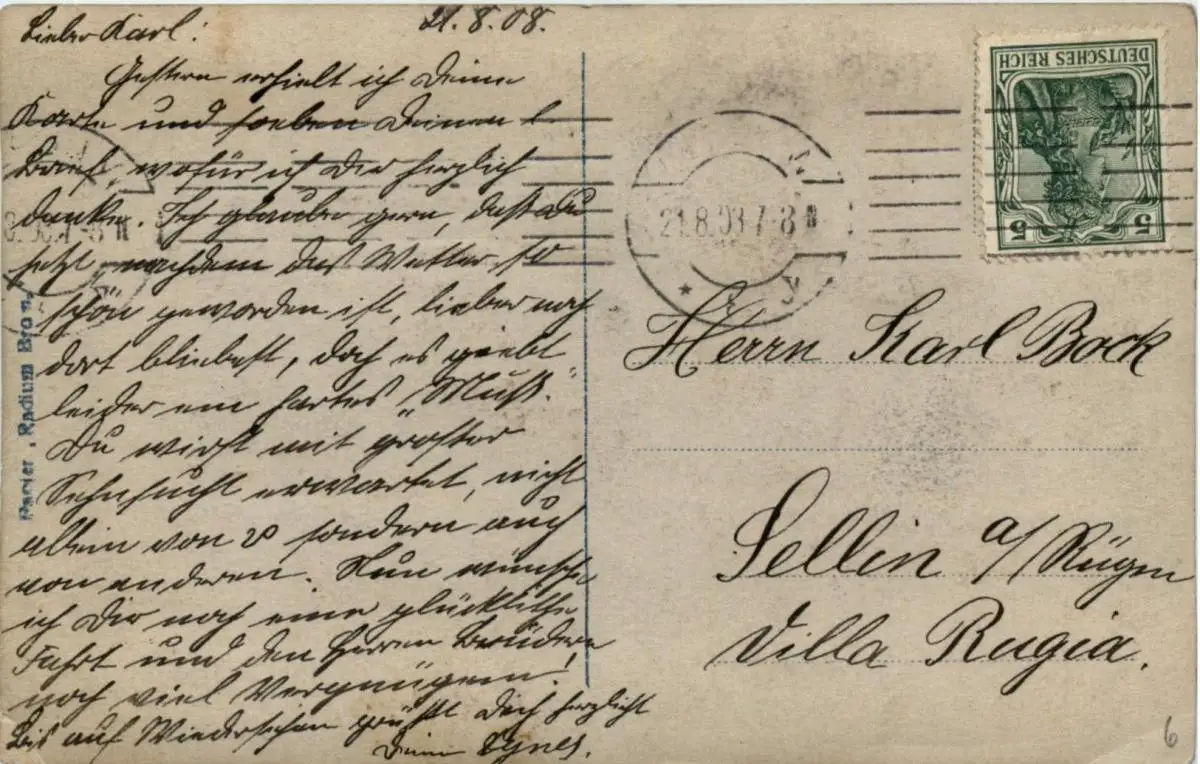 21.8.08.
Lieber Karl!
Gestern erhielt ich Deine
Karte und soeben Deinen l
Brief, wofür ich Dir herzlich
danke. Ich glaube gern, daß Du
jetzt, nachdem das Wetter so
schön geworden ist, lieber noch
dort bliebest, doch es giebt
leider ein hartes „Muß."
Du wirst mit großer
Sehnsucht erwartet, nicht
allein von sondern auch
von anderen. Nun wünsche
ich Dir noch eine glückliche
Fahrt und den Herren Brüdern
noch viel Vergnügen!
Bis auf Wiedersehen grüßt Dich herzlich
Deine Agnes.
Papier „Radium Brom
DEUTSCHES REICH
5 5
21.8.08 7-8 N
Herrn Karl Bock
Sellin a/Rügen
Villa Rugia.
6